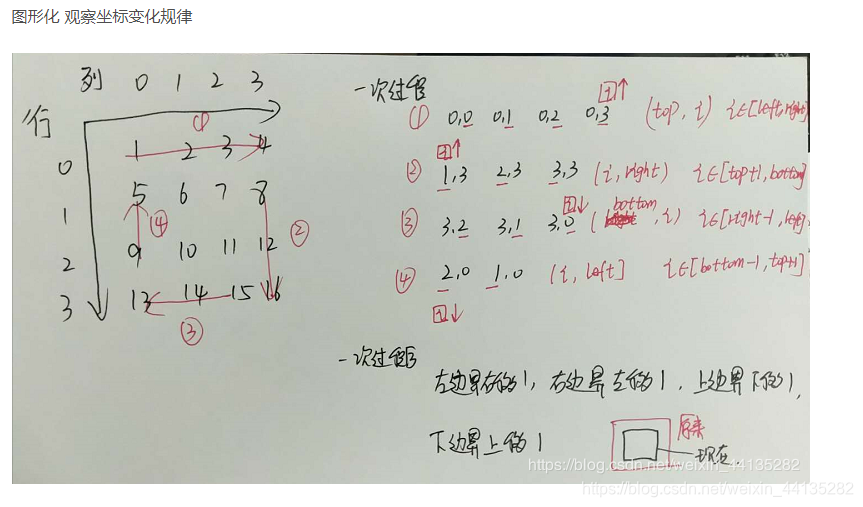 图形化 观察坐标变化规律
列 0 1 2 3
行
①
0 1 2 3 4
1 5 6 7 8
④ ②
2 9 10 11 12
3 13 14 15 16
③
一次过程
① 0,0 0,1 0,2 0,3 (top, i) i∈[left,right]
② 1,3 2,3 3,3 (i, right) i∈[top+1,bottom]
bottom
③ 3,2 3,1 3,0 ( , i) i∈[right-1,left]
④ 2,0 1,0 (i, left] i∈[bottom-1,top+1]
一次过程后
左边界右移1, 右边界左移1, 上边界下移1,
下边界上移1
原来
现在
https://blog.csdn.net/weixin_44135282
https://blog.csdn.net/weixin_44135282